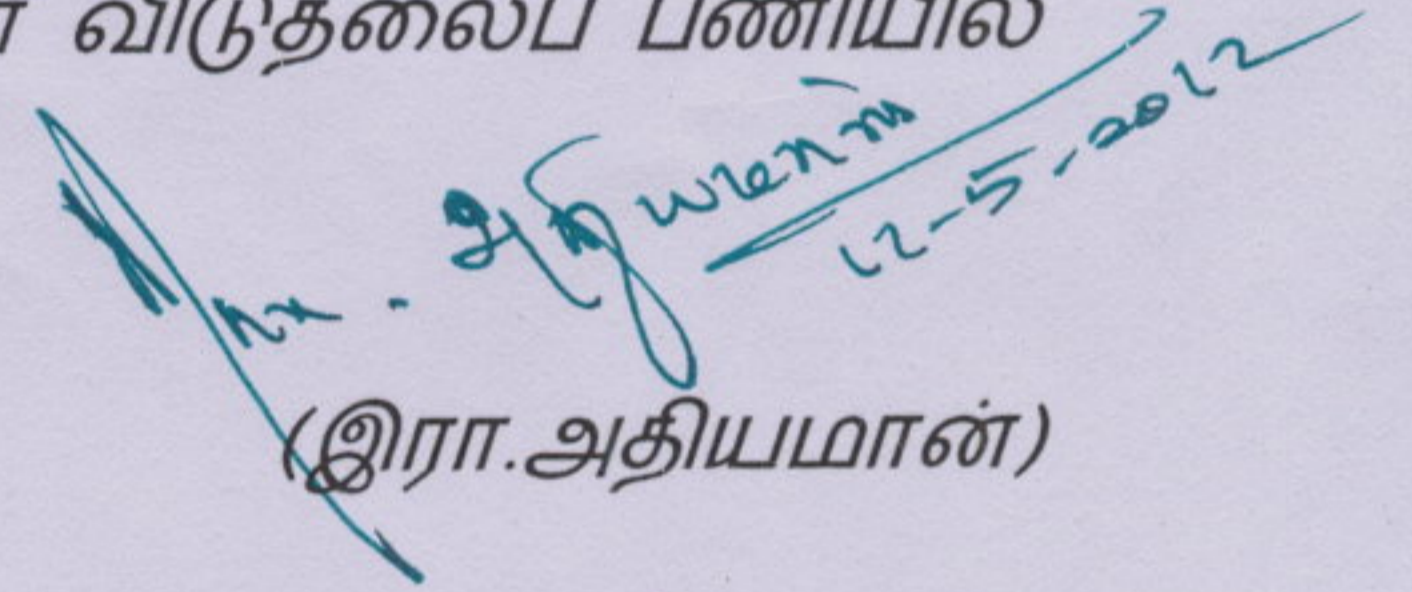 விடுதலைப் பணியில்
அதியமான்
12-5-2012
(இரா.அதியமான்)